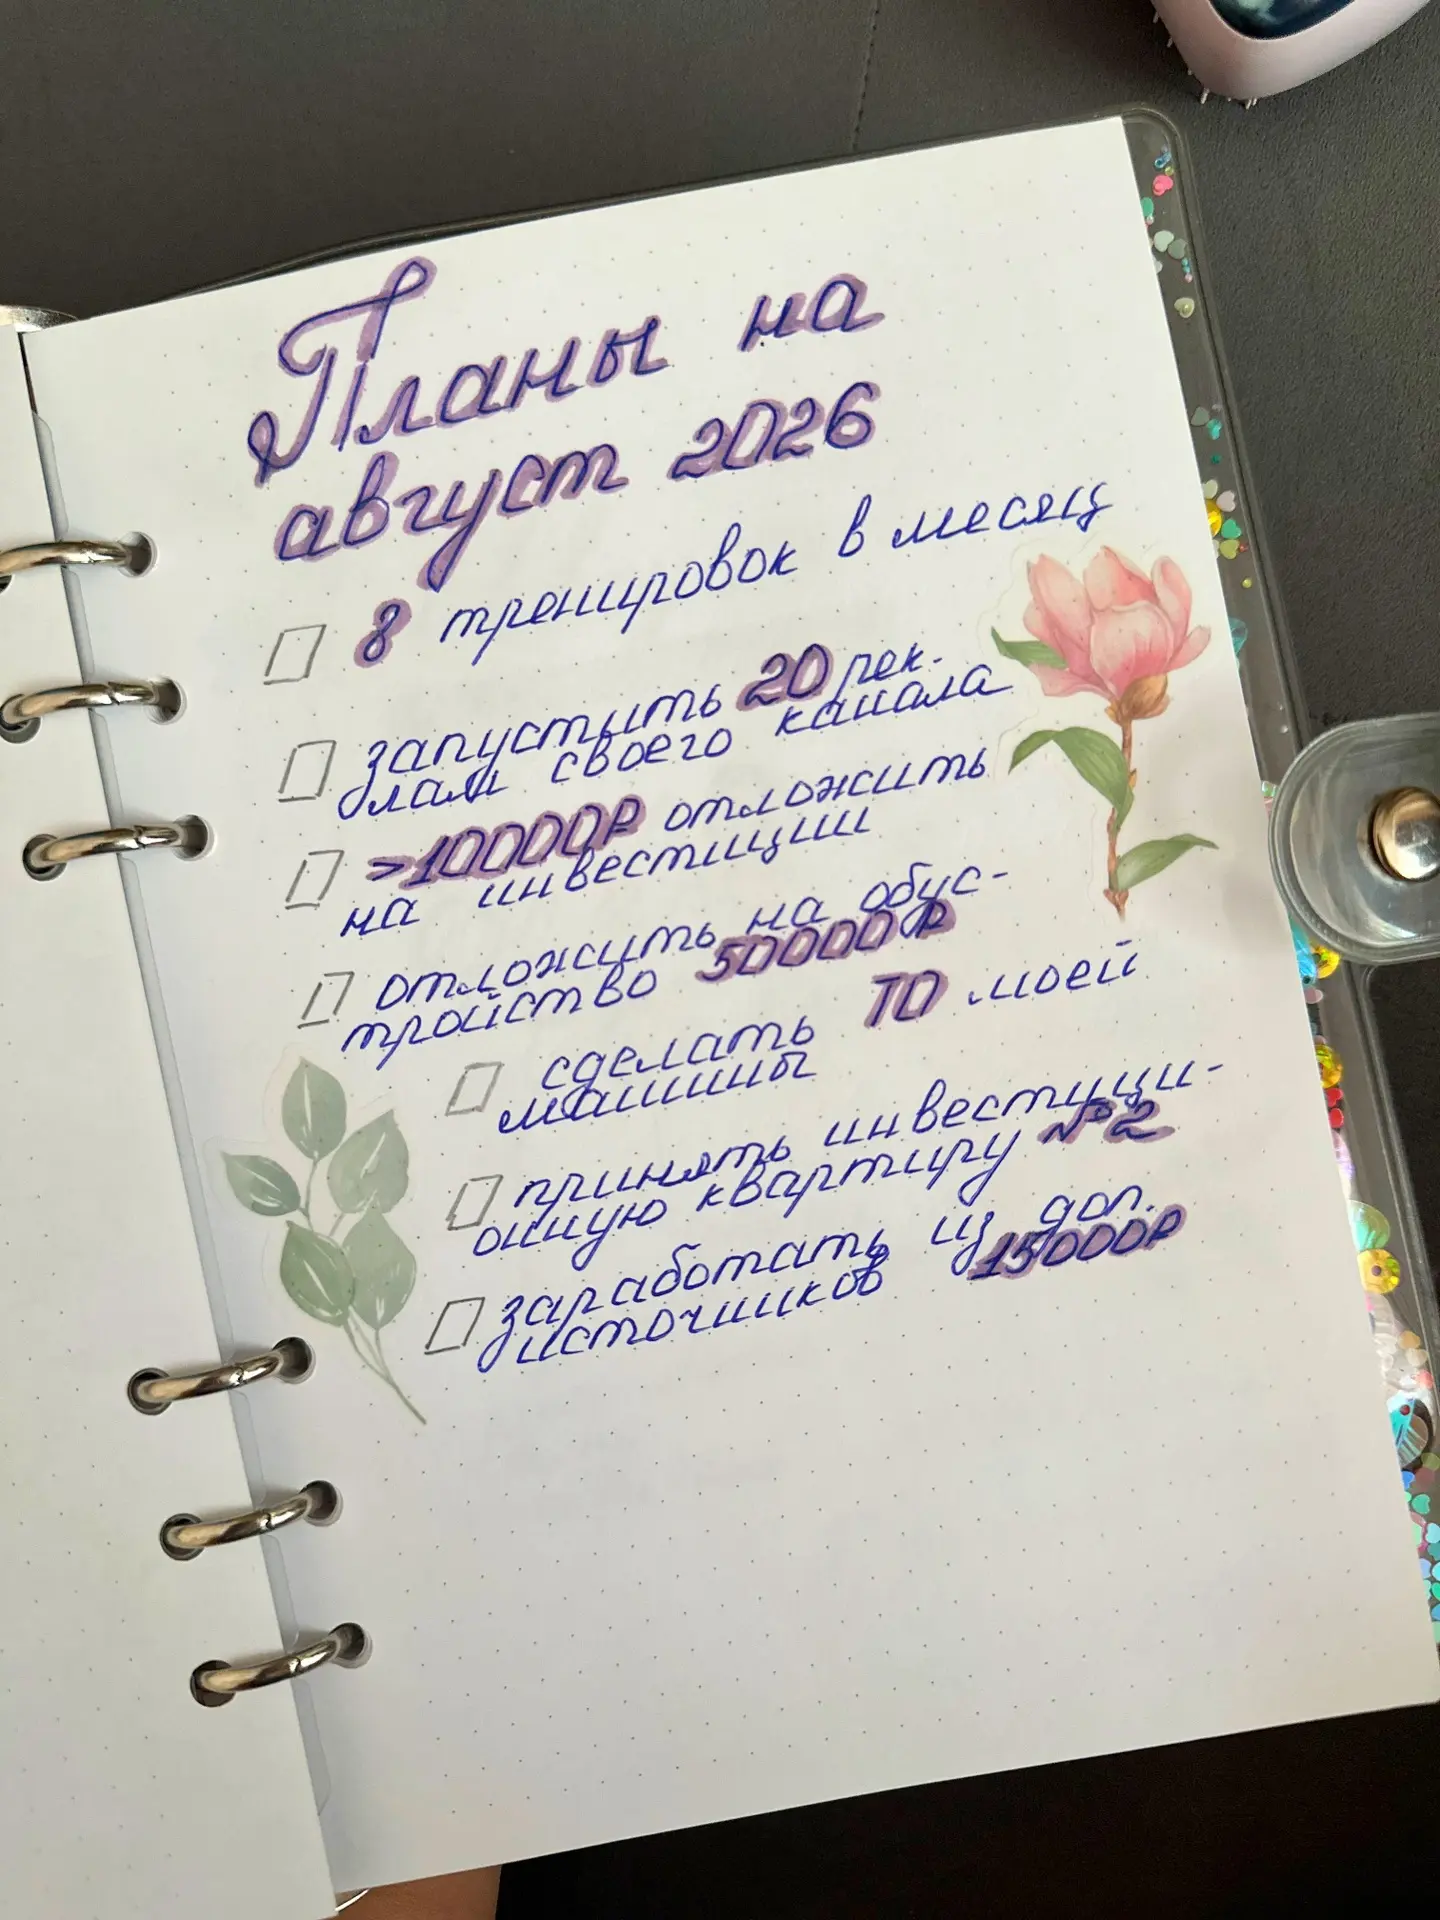 Планы на
август 2026
8 тренировок в месяц
запустить 20 рек-
лам своего канала
>10000₽ отложить
на инвестиции
отложить на обус-
тройство 50000₽
сделать ТО моей
машины
принять инвестици-
онную квартиру №2
заработать из доп.
источников 15000₽